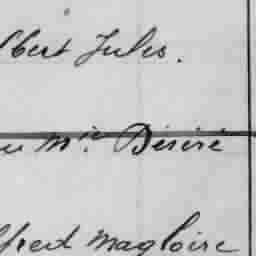 lbert Jules.
u Mie Désiré
lfred Magloire